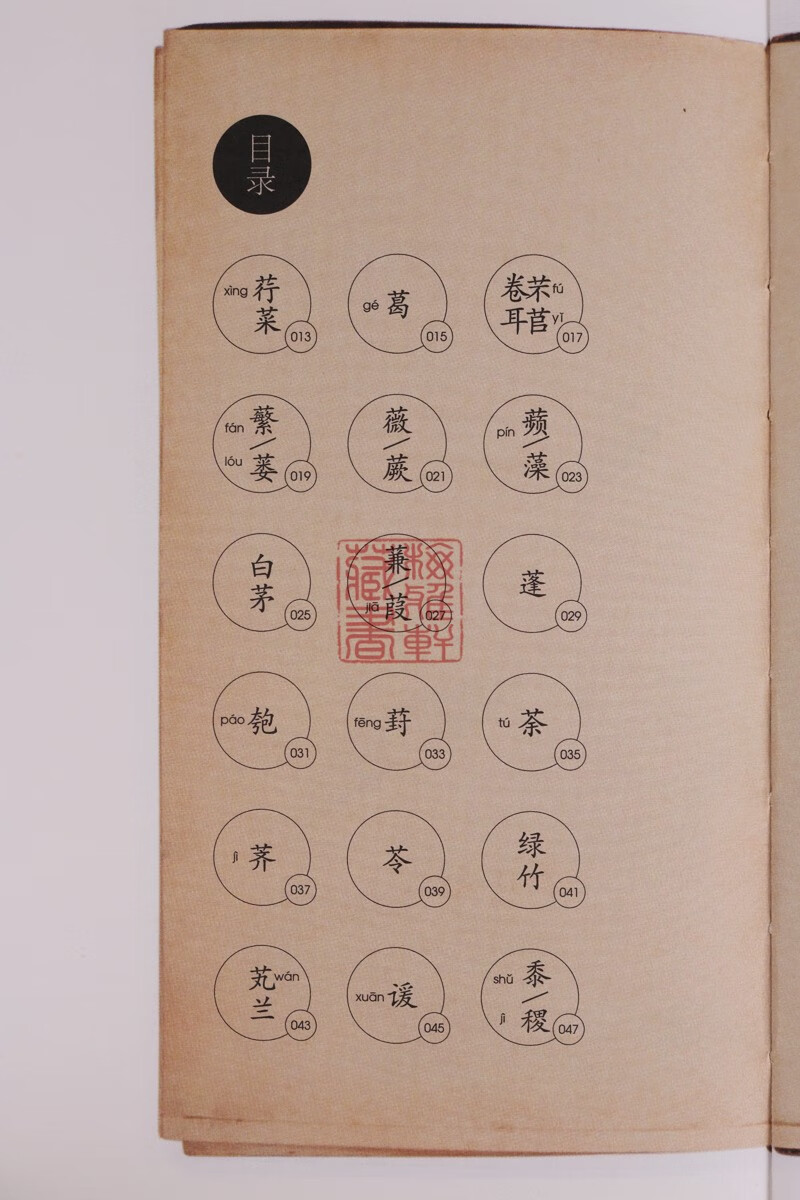 目录
xìng 荇菜 013
gé 葛 015
卷耳 芣苢 fú yǐ 017
fán 蘩 / lóu 蒌 019
薇 / 蕨 021
pín 蘋 / 藻 023
白茅 025
蒹 / jiā 葭 027
蓬 029
páo 匏 031
fēng 葑 033
tú 荼 035
jì 荠 037
苓 039
绿竹 041
芄 wán 兰 043
xuān 谖 045
shǔ 黍 / jì 稷 047